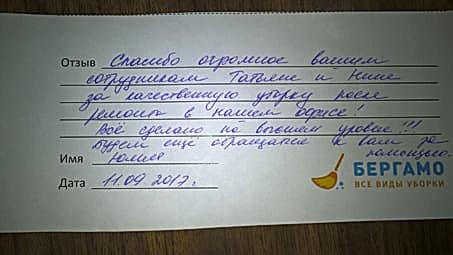 Отзыв Спасибо огромное вашим
сотрудникам Татьяне и Нине
за качественную уборку после
ремонта в нашем офисе!
Всё сделано на высшем уровне!!!
Будем ещё обращаться к вам за
помощью.
Имя Юлия
Дата 11.09 2017г.
БЕРГАМО
ВСЕ ВИДЫ УБОРКИ